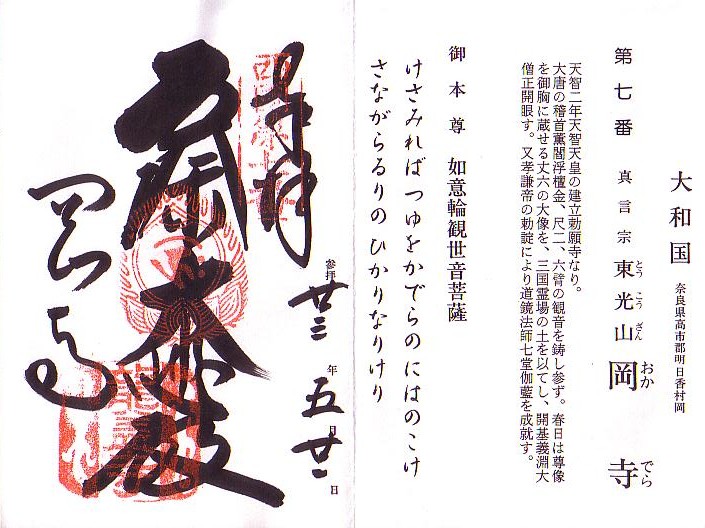 大和国 奈良県高市郡明日香村岡
第七番 真言宗 東光山 岡寺
とうこうざん おかでら
天智二年天智天皇の建立勅願寺なり。
大唐の稽首薫閻浮檀金、尺二、六臂の観音を鋳し参ず。春日は尊像
を御胸に蔵せる丈六の大像を、三国霊場の土を以てし、開基義淵大
僧正開眼す。又孝謙帝の勅諚により道鏡法師七堂伽藍を成就す。
御本尊 如意輪観世音菩薩
けさみれば つゆをかでらの にはのこけ
さながらるりの ひかりなりけり
奉拝
参拝 廿三年 五月 廿一日
岡寺